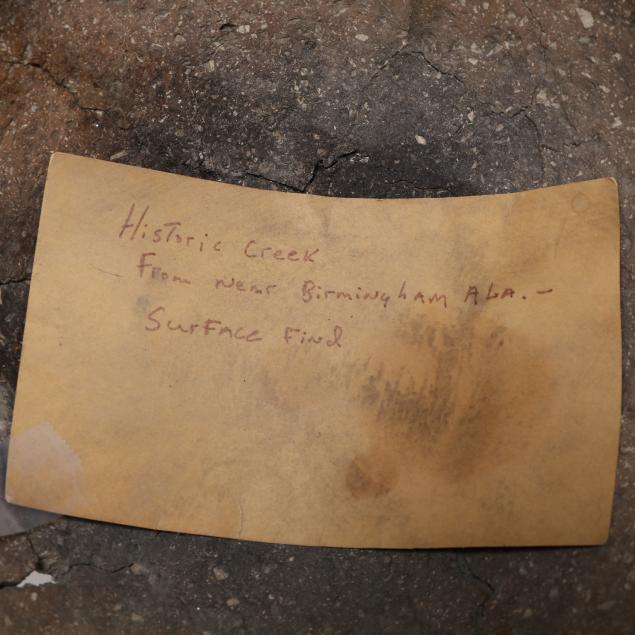 Historic Creek
From near Birmingham Ala. -
Surface Find